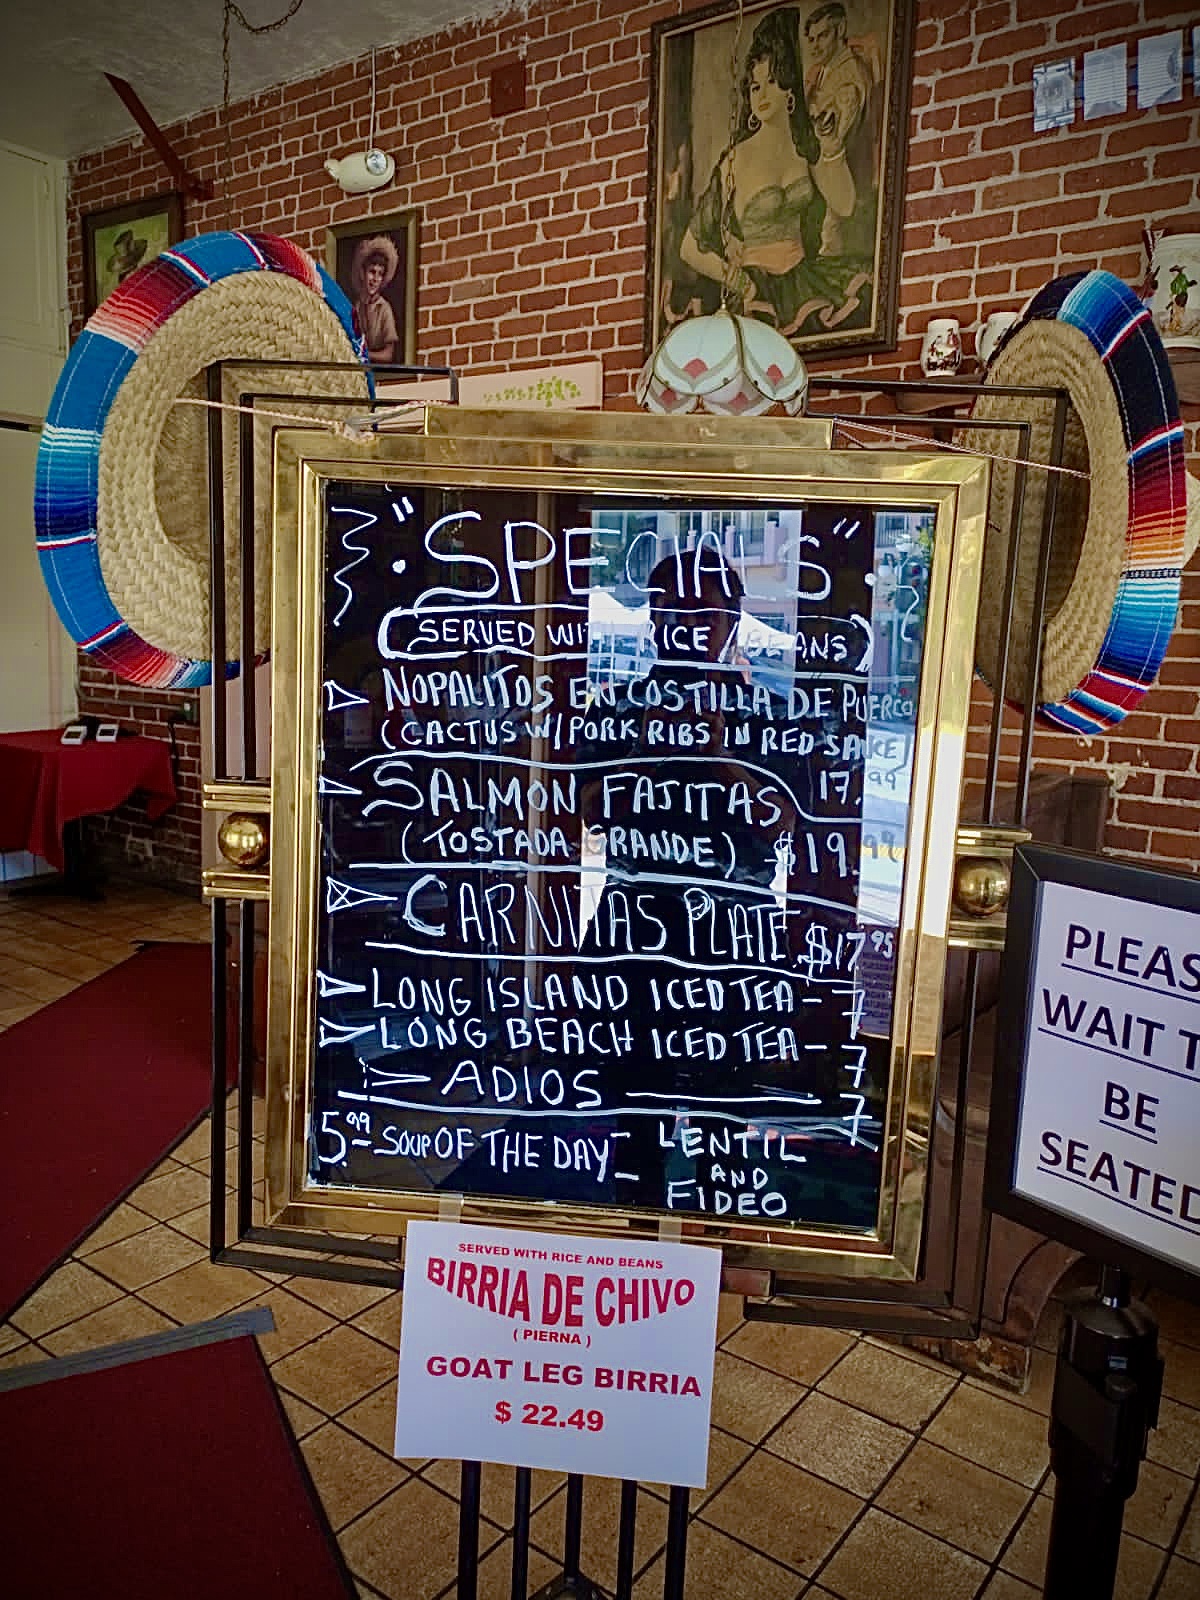 "SPECIALS"
(SERVED WITH RICE / BEANS)
NOPALITOS EN COSTILLA DE PUERCO
(CACTUS W/ PORK RIBS IN RED SAUCE)
17.99
SALMON FAJITAS
(TOSTADA GRANDE) $19.99
CARNITAS PLATE $17.95
LONG ISLAND ICED TEA - 7
LONG BEACH ICED TEA - 7
ADIOS 7
5.99 SOUP OF THE DAY - LENTIL
AND
FIDEO
SERVED WITH RICE AND BEANS
BIRRIA DE CHIVO
( PIERNA )
GOAT LEG BIRRIA
$ 22.49
PLEAS
WAIT T
BE
SEATED